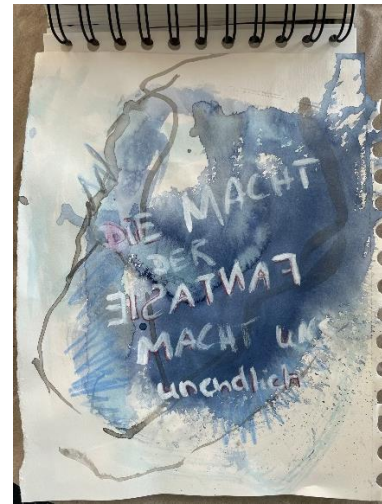 DIE MACHT
DER
FANTASIE
MACHT UNS
unendlich